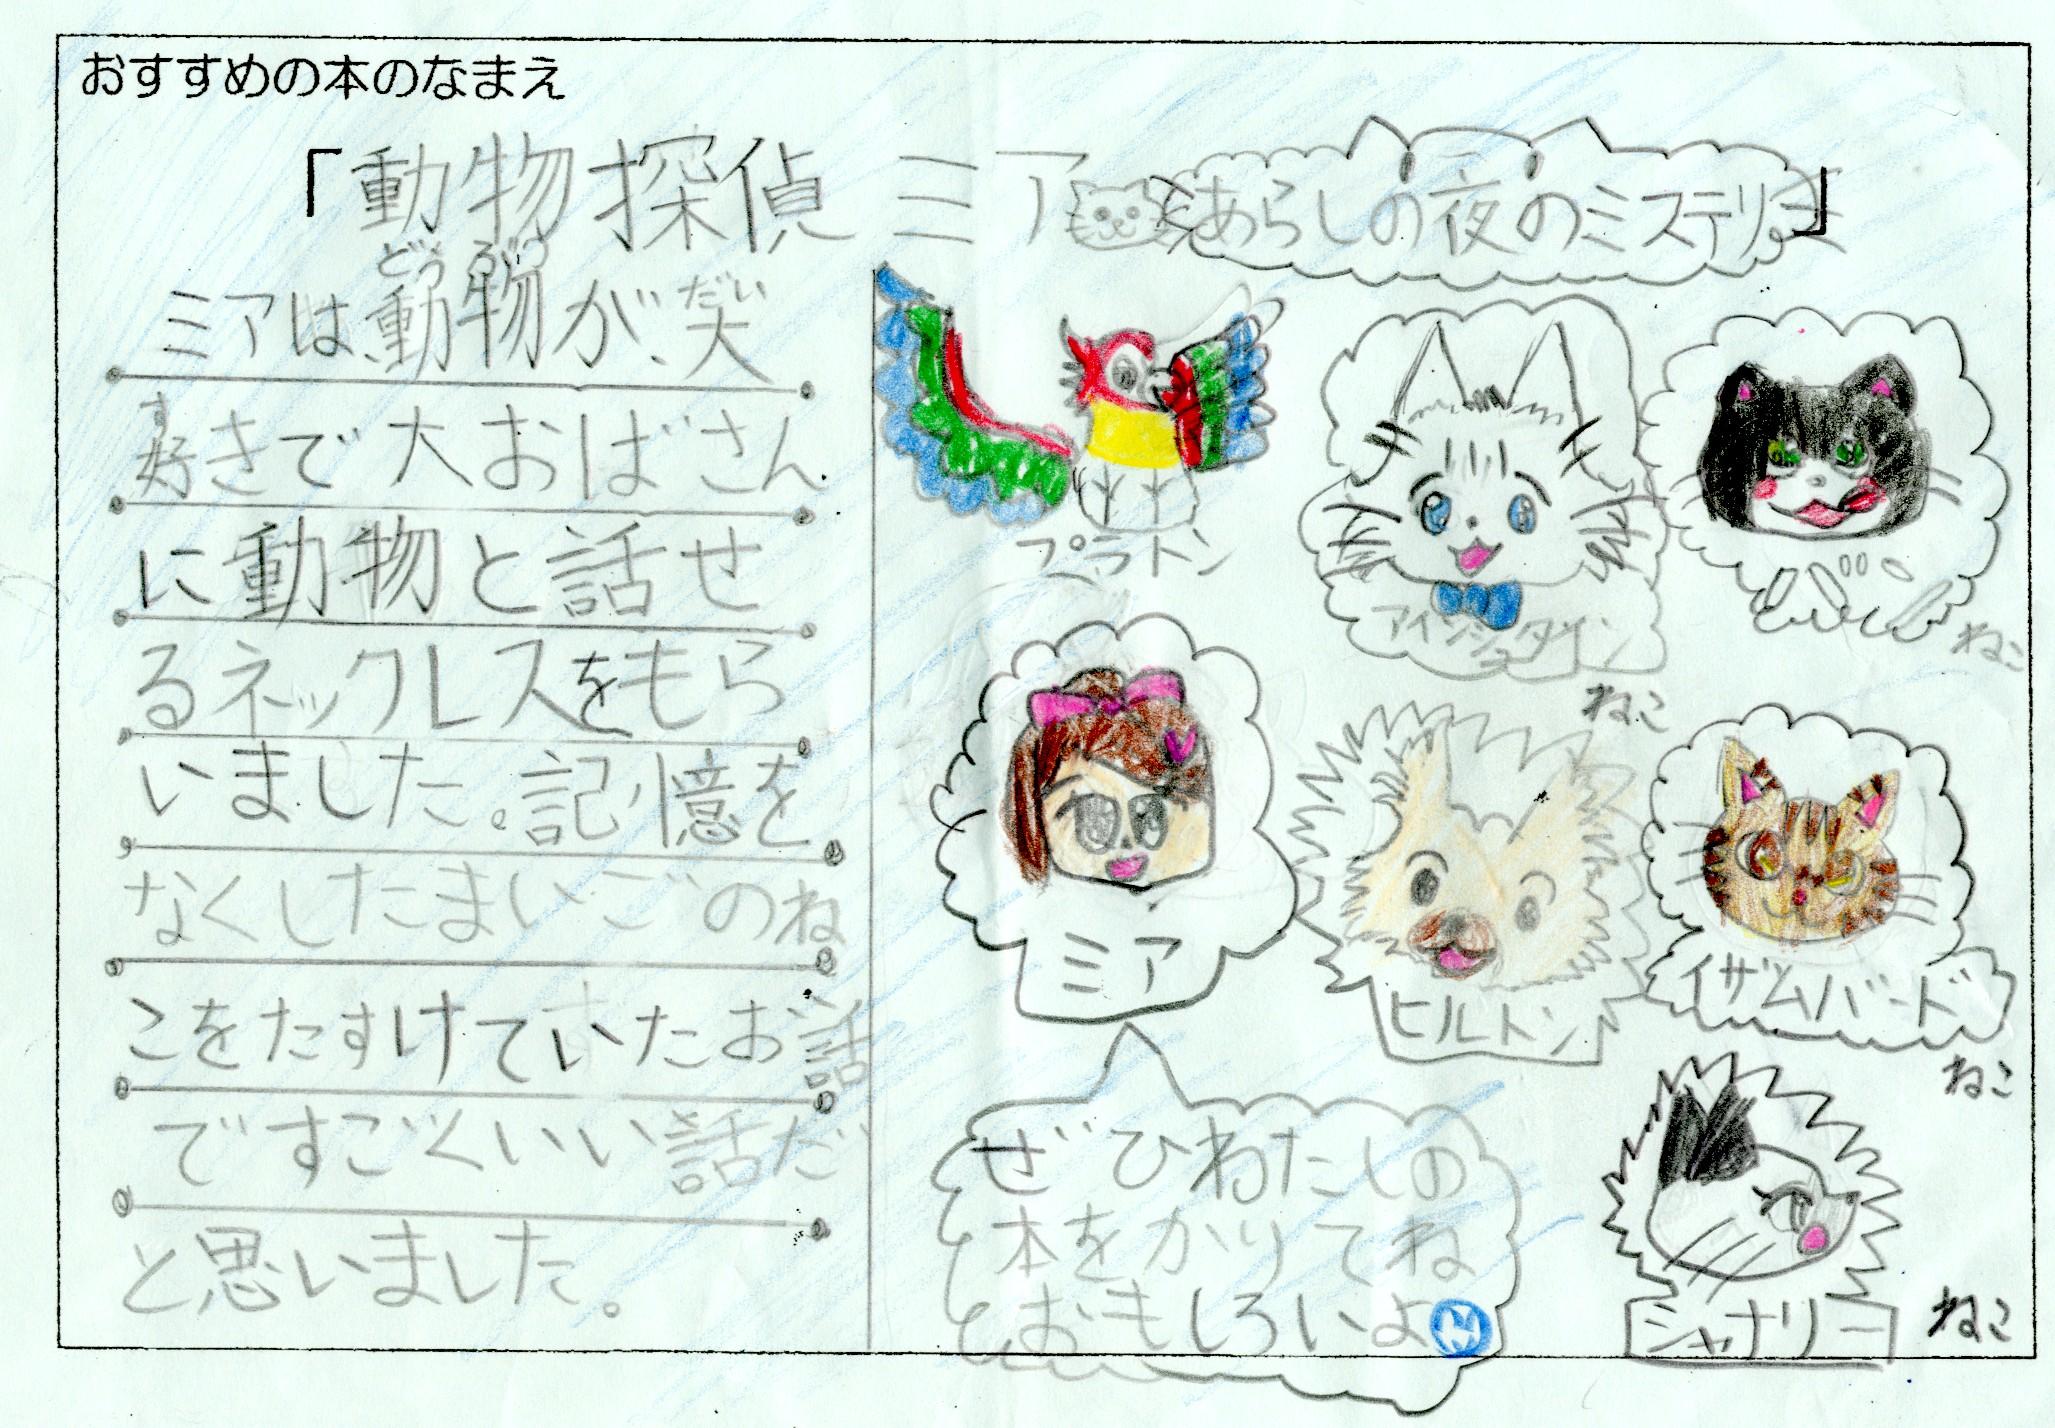 おすすめの本のなまえ
「動物探偵ミア あらしの夜のミステリー」
どうぶつ だい
ミアは、動物が、大
す
好きで大おばさん
に動物と話せ
るネックレスをもら
いました。記憶を
なくしたまいごのね
こをたすけていたお話
ですごくいい話だ
と思いました。
プラトン
アインシュタイン
ねこ
ねこ
ミア
ヒルトン
イザムバード
ねこ
ぜひわたしの
本をかりてね
おもしろいよ
シャナリー
ねこ